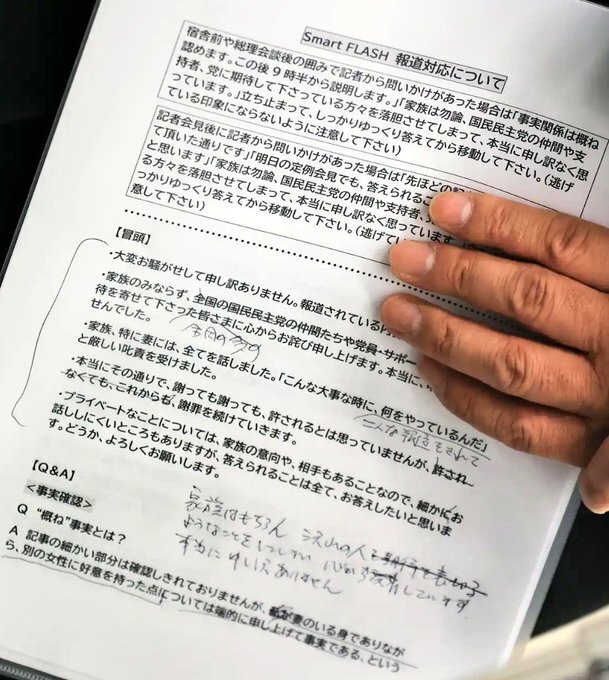 Smart FLASH 報道対応について
宿舎前や総理会談後の囲みで記者から問いかけがあった場合は「事実関係は概ね
認めます。この後9時半から説明します。」「家族は勿論、国民民主党の仲間や支
持者、党に期待して下さっている方々を落胆させてしまって、本当に申し訳なく思
っています。」立ち止まって、しっかりゆっくり答えてから移動して下さい。（逃げ
ている印象にならないように注意して下さい）
記者会見後に記者から問いかけがあった場合は「先ほどの
て頂いた通りです」「明日の定例会見でも、答えられるこ
と思います」「家族は勿論、国民民主党の仲間や支持者、
る方々を落胆させてしまって、本当に申し訳なく思っています。
っかりゆっくり答えてから移動して下さい。（逃げてい
意して下さい）
【冒頭】
・大変お騒がせして申し訳ありません。報道されている内
・家族のみならず、全国の国民民主党の仲間たちや党員・サポー
待を寄せて下さった皆さまに心からお詫び申し上げます。本当に、
せんでした。
・家族、特に妻には、全てを話しました。「こんな大事な時に、何をやっているんだ」
こんな報道をされて
と厳しい叱責を受けました。
・本当にその通りで、謝っても謝っても、許されるとは思っていませんが、許され
なくても、これからも、謝罪を続けていきます。
・プライベートなことについては、家族の意向や、相手もあることなので、細かにお
話ししにくいところもありますが、答えられることは全て、お答えしたいと思いま
す。どうか、よろしくお願いします。
【Q&A】
＜事実確認＞
Q “概ね”事実とは？
A 記事の細かい部分は確認しきれておりませんが、妻のいる身でありなが
ら、別の女性に好意を持った点については端的に申し上げて事実である、という
家族はもちろん 沢山の人を
ようなことをして 心から
本当に申しわけありません